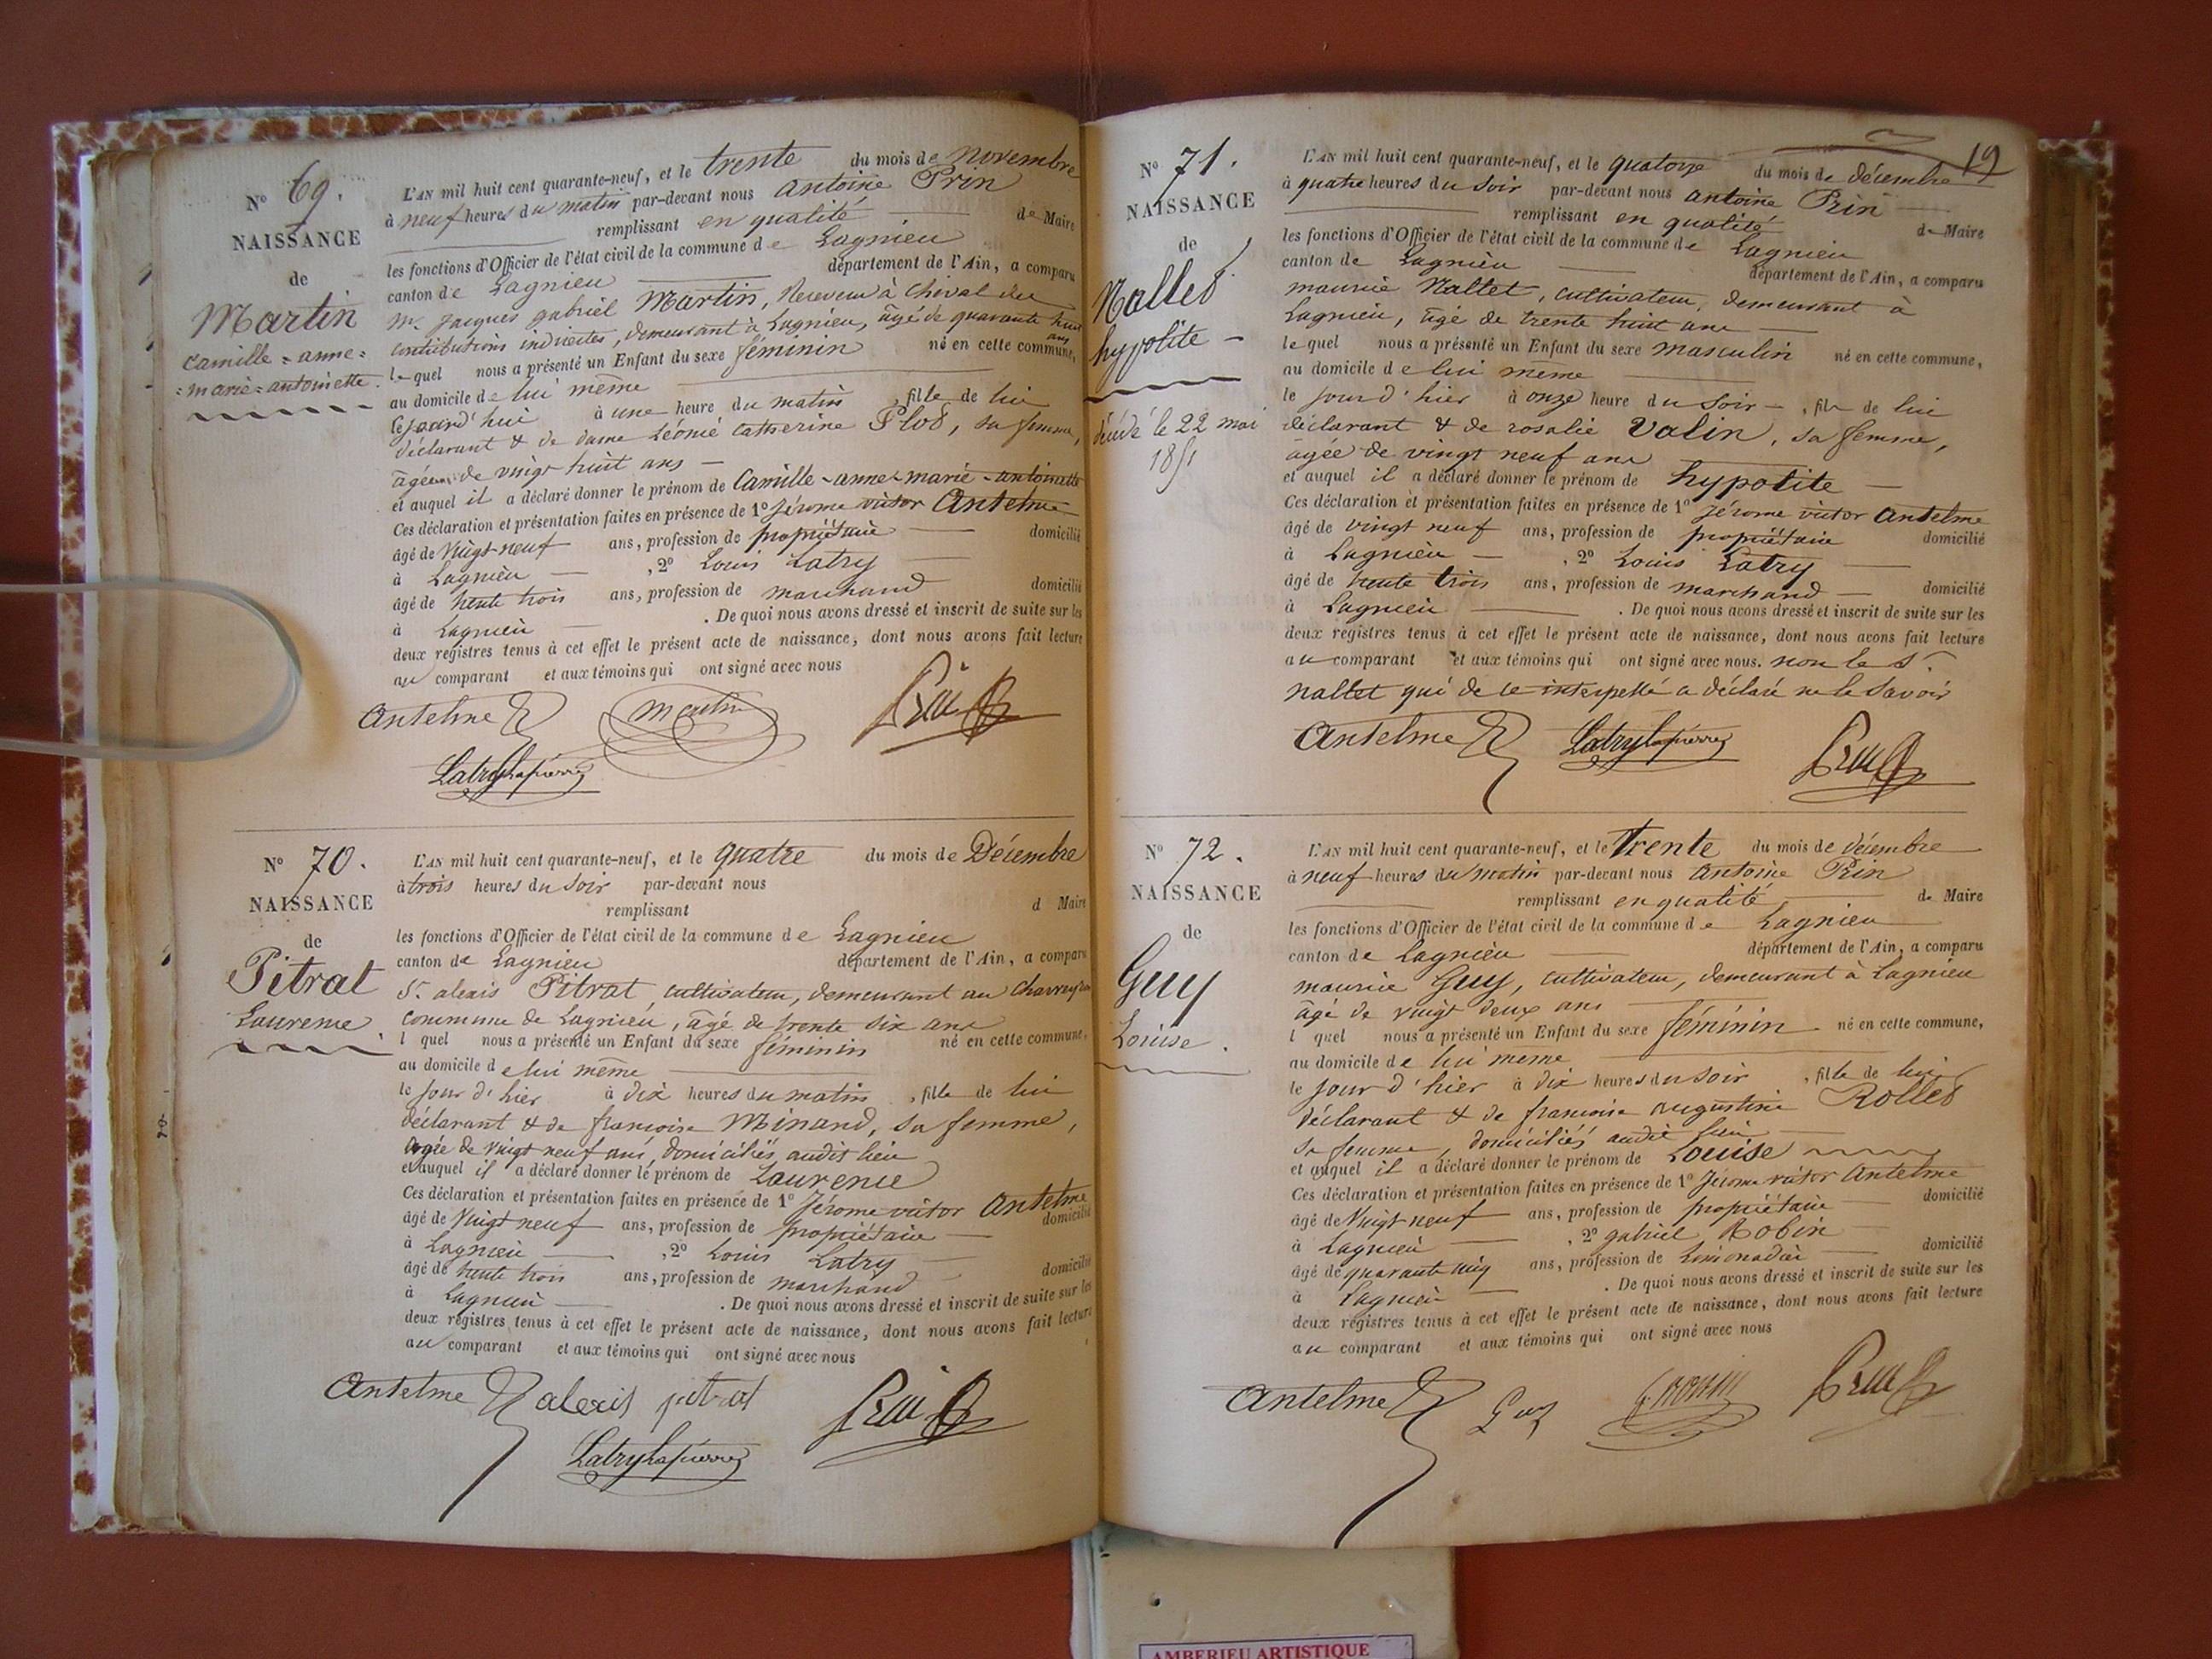 N° 69.
NAISSANCE
de
Martin
Camille = anne =
= marie = antoinette.
L'AN mil huit cent quarante-neuf, et le trente du mois de novembre
à neuf heures du matin par-devant nous antoine Prin
remplissant en qualité de Maire
les fonctions d'Officier de l'état civil de la commune de Lagnieu
canton de Lagnieu département de l'Ain, a comparu
mr. Jacques gabriel Martin, Receveur à cheval des
contributions indirectes, demeurant à Lagnieu, âgé de quarante huit ans
lequel nous a présenté un Enfant du sexe féminin né en cette commune,
au domicile de lui même
cejourd'hui à une heure du matin, fille de lui
déclarant & de dame Léonie Catherine Plot, sa femme,
âgée de vingt huit ans
et auquel il a déclaré donner le prénom de Camille-anne-marie-antoinette
Ces déclaration et présentation faites en présence de 1° Jérome victor Anselme
âgé de vingt neuf ans, profession de propriétaire domicilié
à Lagnieu, 2° Louis Latry
âgé de trente trois ans, profession de marchand domicilié
à Lagnieu. De quoi nous avons dressé et inscrit de suite sur les
deux registres tenus à cet effet le présent acte de naissance, dont nous avons fait lecture
au comparant et aux témoins qui ont signé avec nous
Anselme Martin Prin
Latry Lapierre
N° 70.
NAISSANCE
de
Pitrat
Laurence
L'AN mil huit cent quarante-neuf, et le quatre du mois de Décembre
à trois heures du soir par-devant nous
remplissant d Maire
les fonctions d'Officier de l'état civil de la commune de Lagnieu
canton de Lagnieu département de l'Ain, a comparu
Sr. alexis Pitrat, cultivateur, demeurant au
commune de Lagnieu, âgé de trente six ans
l quel nous a présenté un Enfant du sexe féminin né en cette commune,
au domicile de lui même
le jour d'hier à dix heures du matin, fille de lui
déclarant & de françoise Minand, sa femme,
agée de vingt neuf ans, domiciliés audit lieu
et auquel il a déclaré donner le prénom de Laurence
Ces déclaration et présentation faites en présence de 1° Jérome victor Anselme
âgé de vingt neuf ans, profession de propriétaire domicilié
à Lagnieu, 2° Louis Latry
âgé de trente trois ans, profession de marchand domicilié
à Lagnieu. De quoi nous avons dressé et inscrit de suite sur les
deux registres tenus à cet effet le présent acte de naissance, dont nous avons fait lecture
au comparant et aux témoins qui ont signé avec nous
Anselme alexis pitrat Prin
Latry Lapierre
19
N° 71.
NAISSANCE
de
Nallet
hypolite
décédé le 22 mai
1851
L'AN mil huit cent quarante-neuf, et le quatorze du mois de décembre
à quatre heures du soir par-devant nous antoine Prin
remplissant en qualité de Maire
les fonctions d'Officier de l'état civil de la commune de Lagnieu
canton de Lagnieu département de l'Ain, a comparu
maurice Nallet, cultivateur, demeurant à
Lagnieu, âgé de trente huit ans
lequel nous a présenté un Enfant du sexe masculin né en cette commune,
au domicile de lui même
le jour d'hier à onze heure du soir, fils de lui
déclarant & de rosalie Valin, sa femme,
âgée de vingt neuf ans
et auquel il a déclaré donner le prénom de hypolite
Ces déclaration et présentation faites en présence de 1° Jérome victor Anselme
âgé de vingt neuf ans, profession de propriétaire domicilié
à Lagnieu, 2° Louis Latry
âgé de trente trois ans, profession de marchand domicilié
à Lagnieu. De quoi nous avons dressé et inscrit de suite sur les
deux registres tenus à cet effet le présent acte de naissance, dont nous avons fait lecture
au comparant et aux témoins qui ont signé avec nous. non le Sr.
nallet qui de ce interpellé a déclaré ne le savoir
Anselme Latry Lapierre Prin
N° 72.
NAISSANCE
de
Guy
Louise.
L'AN mil huit cent quarante-neuf, et le trente du mois de décembre
à neuf heures du matin par-devant nous antoine Prin
remplissant en qualité de Maire
les fonctions d'Officier de l'état civil de la commune de Lagnieu
canton de Lagnieu département de l'Ain, a comparu
maurice Guy, cultivateur, demeurant à Lagnieu
âgé de vingt deux ans
l quel nous a présenté un Enfant du sexe féminin né en cette commune,
au domicile de lui même
le jour d'hier à dix heures du soir, fille de lui
déclarant & de françoise augustine Rollet
sa femme, domiciliés audit lieu
et auquel il a déclaré donner le prénom de Louise
Ces déclaration et présentation faites en présence de 1° Jérome victor Anselme
âgé de vingt neuf ans, profession de propriétaire domicilié
à Lagnieu, 2° gabriel Robin
âgé de quarante cinq ans, profession de limonadier domicilié
à Lagnieu. De quoi nous avons dressé et inscrit de suite sur les
deux registres tenus à cet effet le présent acte de naissance, dont nous avons fait lecture
au comparant et aux témoins qui ont signé avec nous
Anselme Guy Prin
AMBERIEU ARTISTIQUE